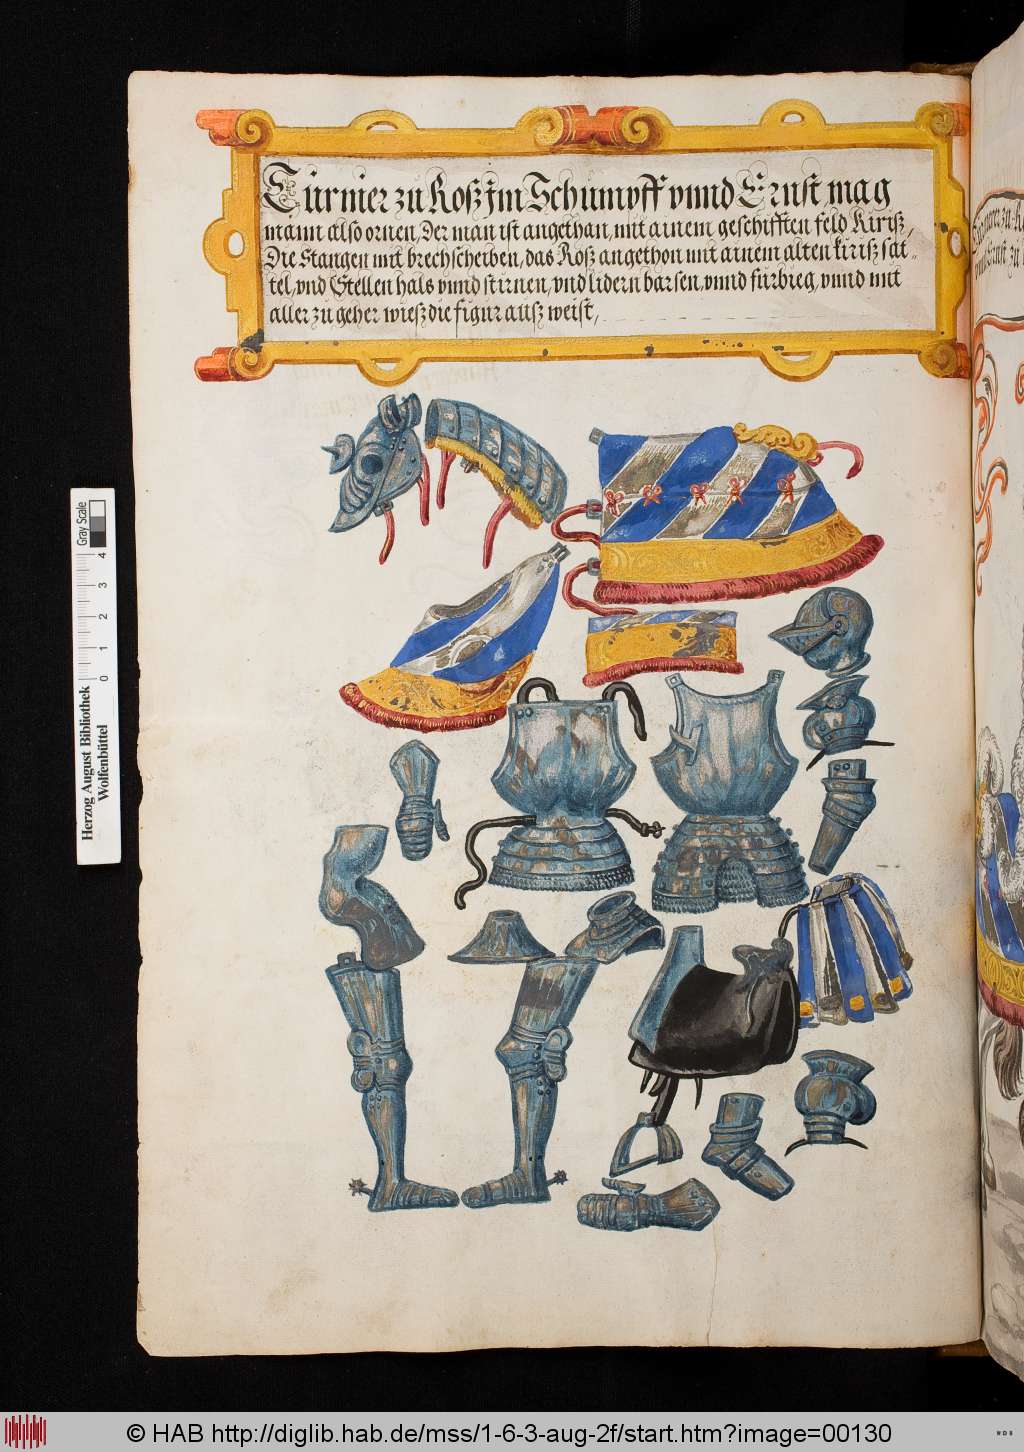 Turnier zu Roß Im Schumpff vnnd Ernst mag
mann also ornen, Der man ist angethan, mit ainem geschifften feld Kiriß,
Die Stangen mit brechscheiben, das Roß angethon mit ainem alten kiriß sat-
tel, vnd Stellen hals vnnd stirnen, vnd lidern barsen, vnnd furbieg, vnnd mit
aller zu geher wieß die figur auß weist,
Gray Scale
0 1 2 3 4
Herzog August Bibliothek
Wolfenbüttel
© HAB http://diglib.hab.de/mss/1-6-3-aug-2f/start.htm?image=00130